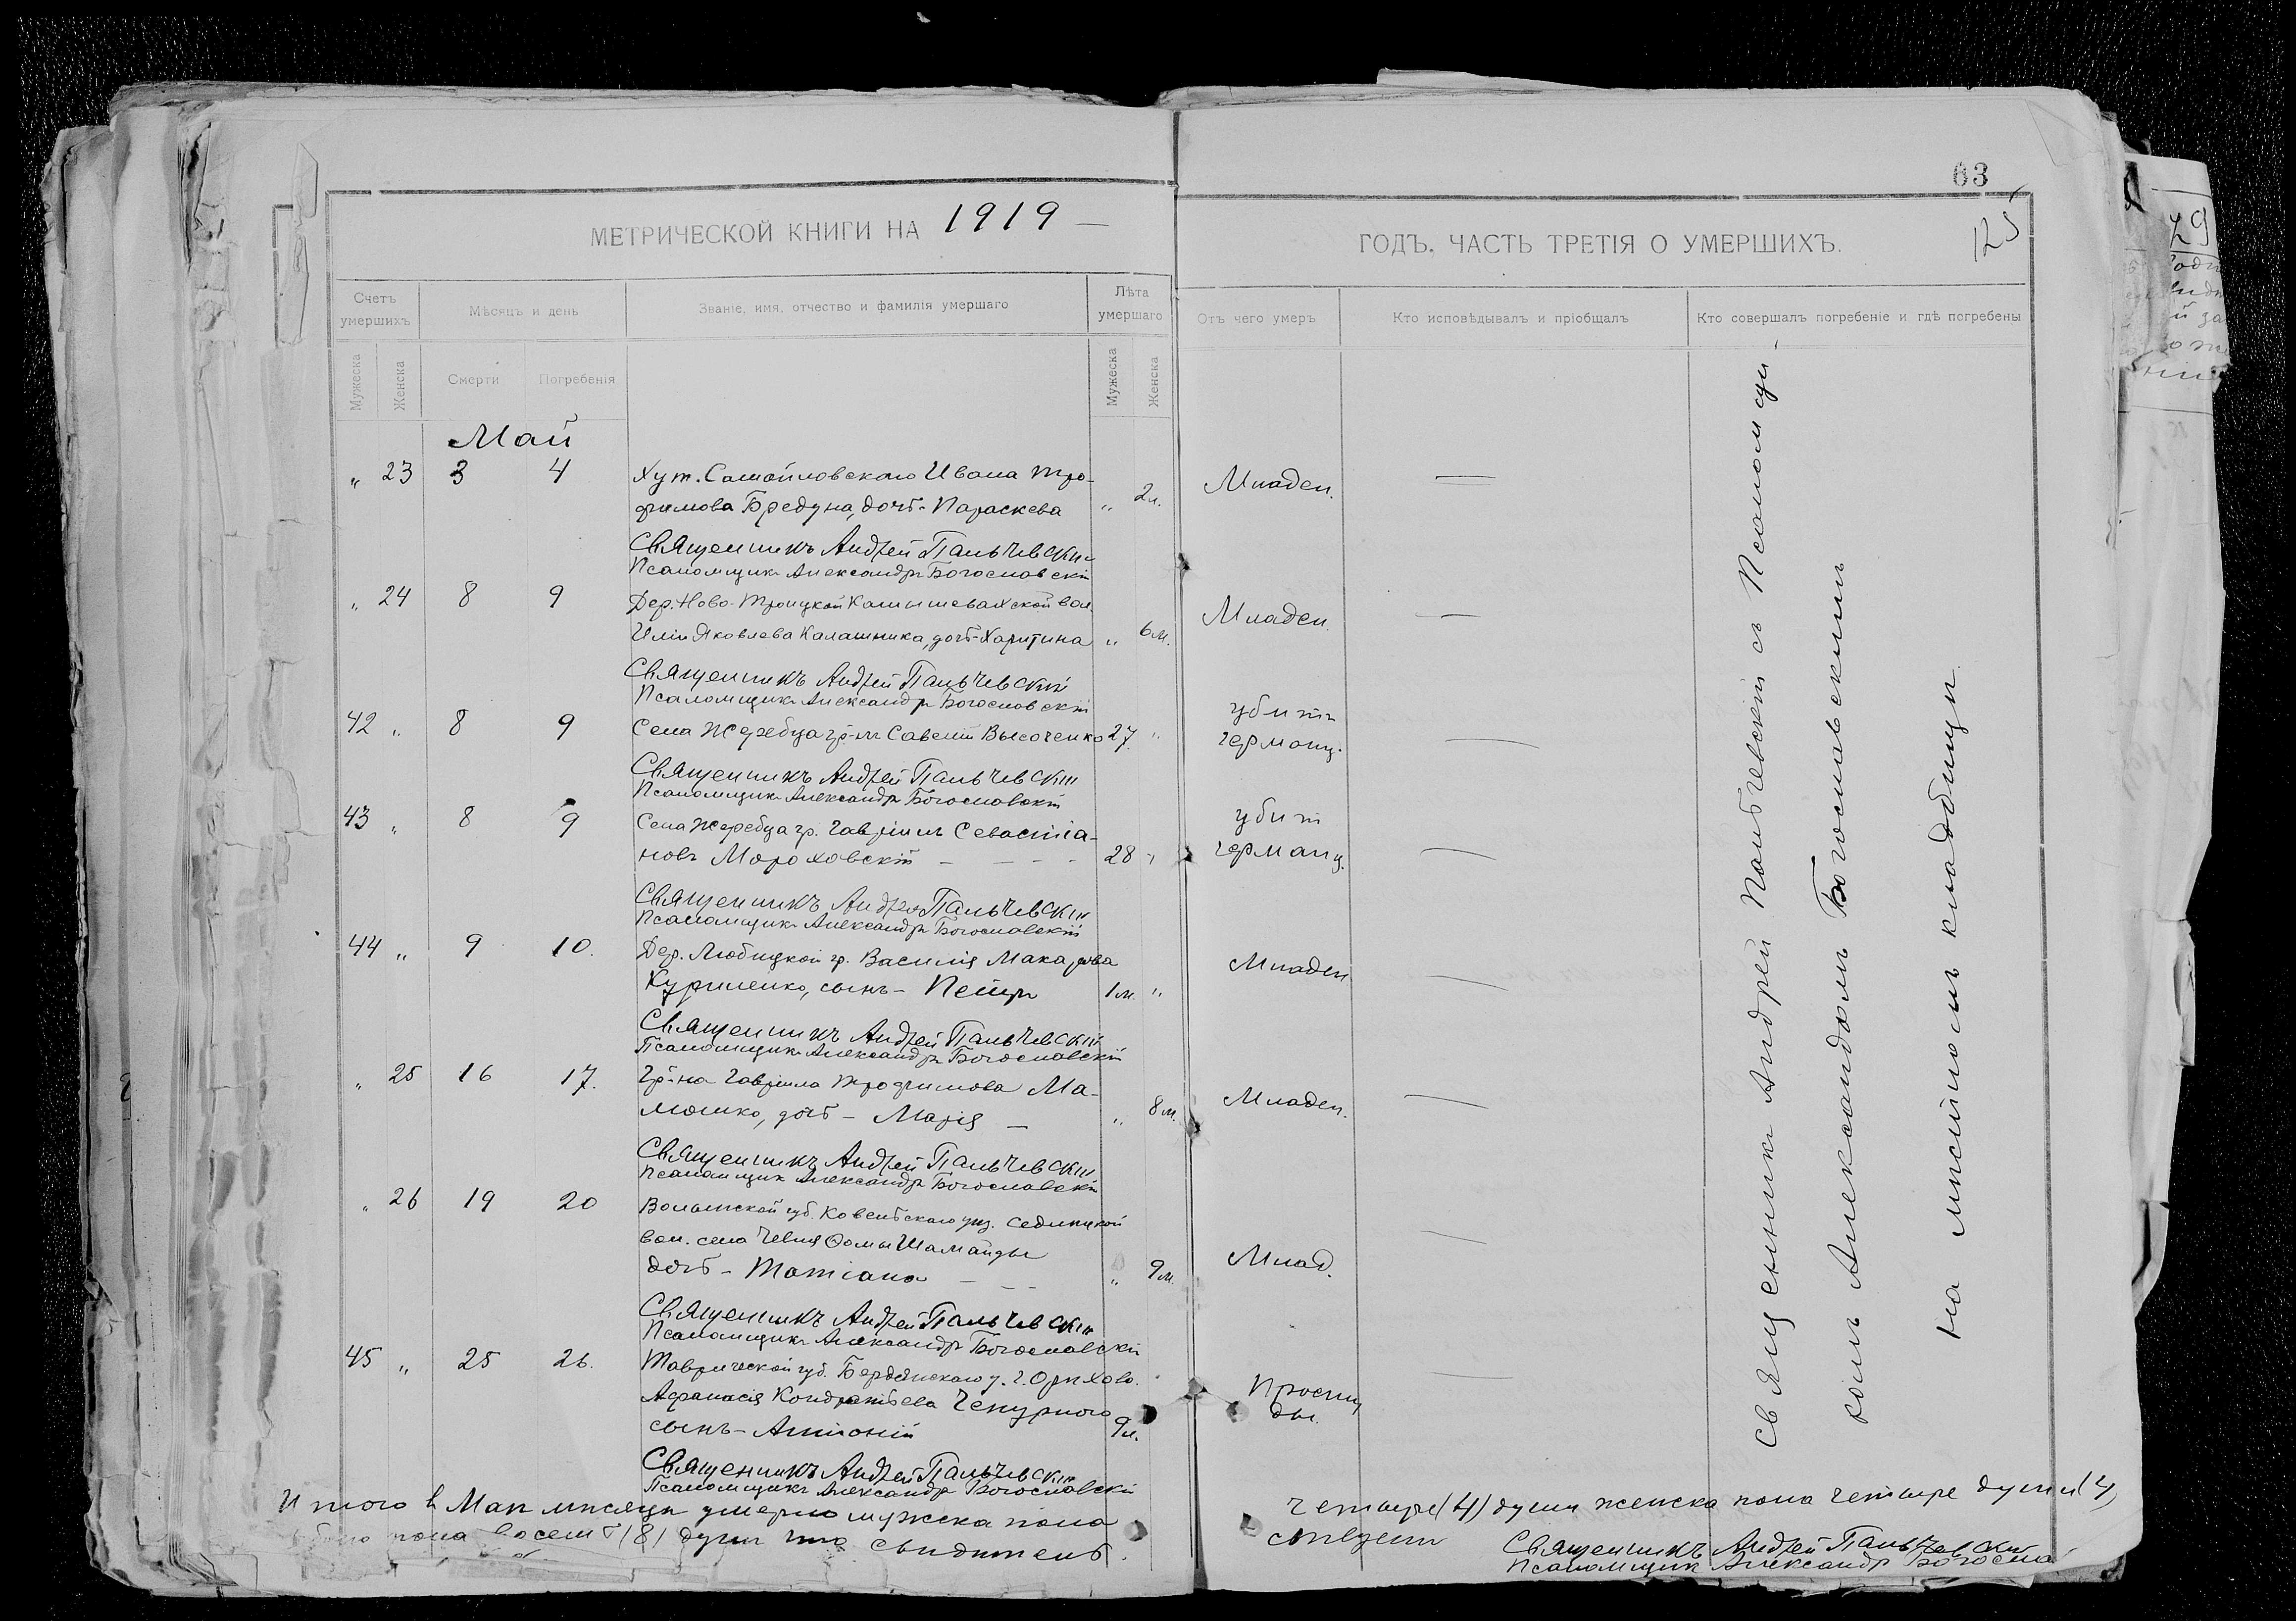 63
125
МЕТРИЧЕСКОЙ КНИГИ НА 1919 —
ГОДЪ. ЧАСТЬ ТРЕТІЯ О УМЕРШИХЪ.
Счетъ умершихъ
Мѣсяцъ и день
Званіе, имя, отчество и фамилія умершаго
Лѣта умершаго
Отъ чего умеръ
Кто исповѣдывалъ и пріобщалъ
Кто совершалъ погребеніе и гдѣ погребены
Мужеска Женска Смерти Погребенія Мужеска Женска
Май
„ 23 3 4 Хут. Самойловскаго Ивана Тро-
фимова Бредуна, дочь - Параскева „ 2 л. Младен. —
Священникъ Андрей Пальчевскій
Псаломщикъ Александръ Богословскій
„ 24 8 9 Дер. Ново-Троицкой Камышевахской вол.
Иліи Яковлева Калашника, дочь - Харитина „ 6 м. Младен. —
Священникъ Андрей Пальчевскій
Псаломщикъ Александръ Богословскій
42 „ 8 9 Села Жеребца гр-нъ Савелій Высоченко 27 „ убитъ германц. —
Священникъ Андрей Пальчевскій
Псаломщикъ Александръ Богословскій
43 „ 8 9 Села Жеребца гр. Гавріилъ Севастіа-
новъ Мороховскій — — — — 28 „ убит германц. —
Священникъ Андрей Пальчевскій
Псаломщикъ Александръ Богословскій
44 „ 9 10. Дер. Любицкой гр. Василія Макарова
Куриленко, сынъ - Петръ 1 м. „ Младен. —
Священникъ Андрей Пальчевскій
Псаломщикъ Александръ Богословскій
„ 25 16 17. Гр-на Гавріила Трофимова Ма-
мошко, дочь - Марія — „ 8 м. Младен. —
Священникъ Андрей Пальчевскій
Псаломщикъ Александръ Богословскій
„ 26 19 20 Волынской губ. Ковельскаго уѣз. Седлицкой
вол. села Ѳомы Шамайды
дочь - Татіана — — — „ 9 м. Млад. —
Священникъ Андрей Пальчевскій
Псаломщикъ Александръ Богословскій
45 „ 25 26. Таврической губ. Бердянскаго у. г. Орѣхова.
Афанасія Кондратьева Чепурного
сынъ - Антоній 9 л. Простуды. —
Священникъ Андрей Пальчевскій
Псаломщикъ Александръ Богословскій
Священникъ Андрей Пальчевскій съ Псаломщи-
комъ Александромъ Богословскимъ
на мѣстномъ кладбищѣ
Итого в Маѣ мѣсяцѣ умерло мужска пола
четыре (4) души женска пола четыре души (4)
пола восемь (8) душъ что свидѣтель.
Священникъ Андрей Пальчевскій
Псаломщикъ Александръ Богосла